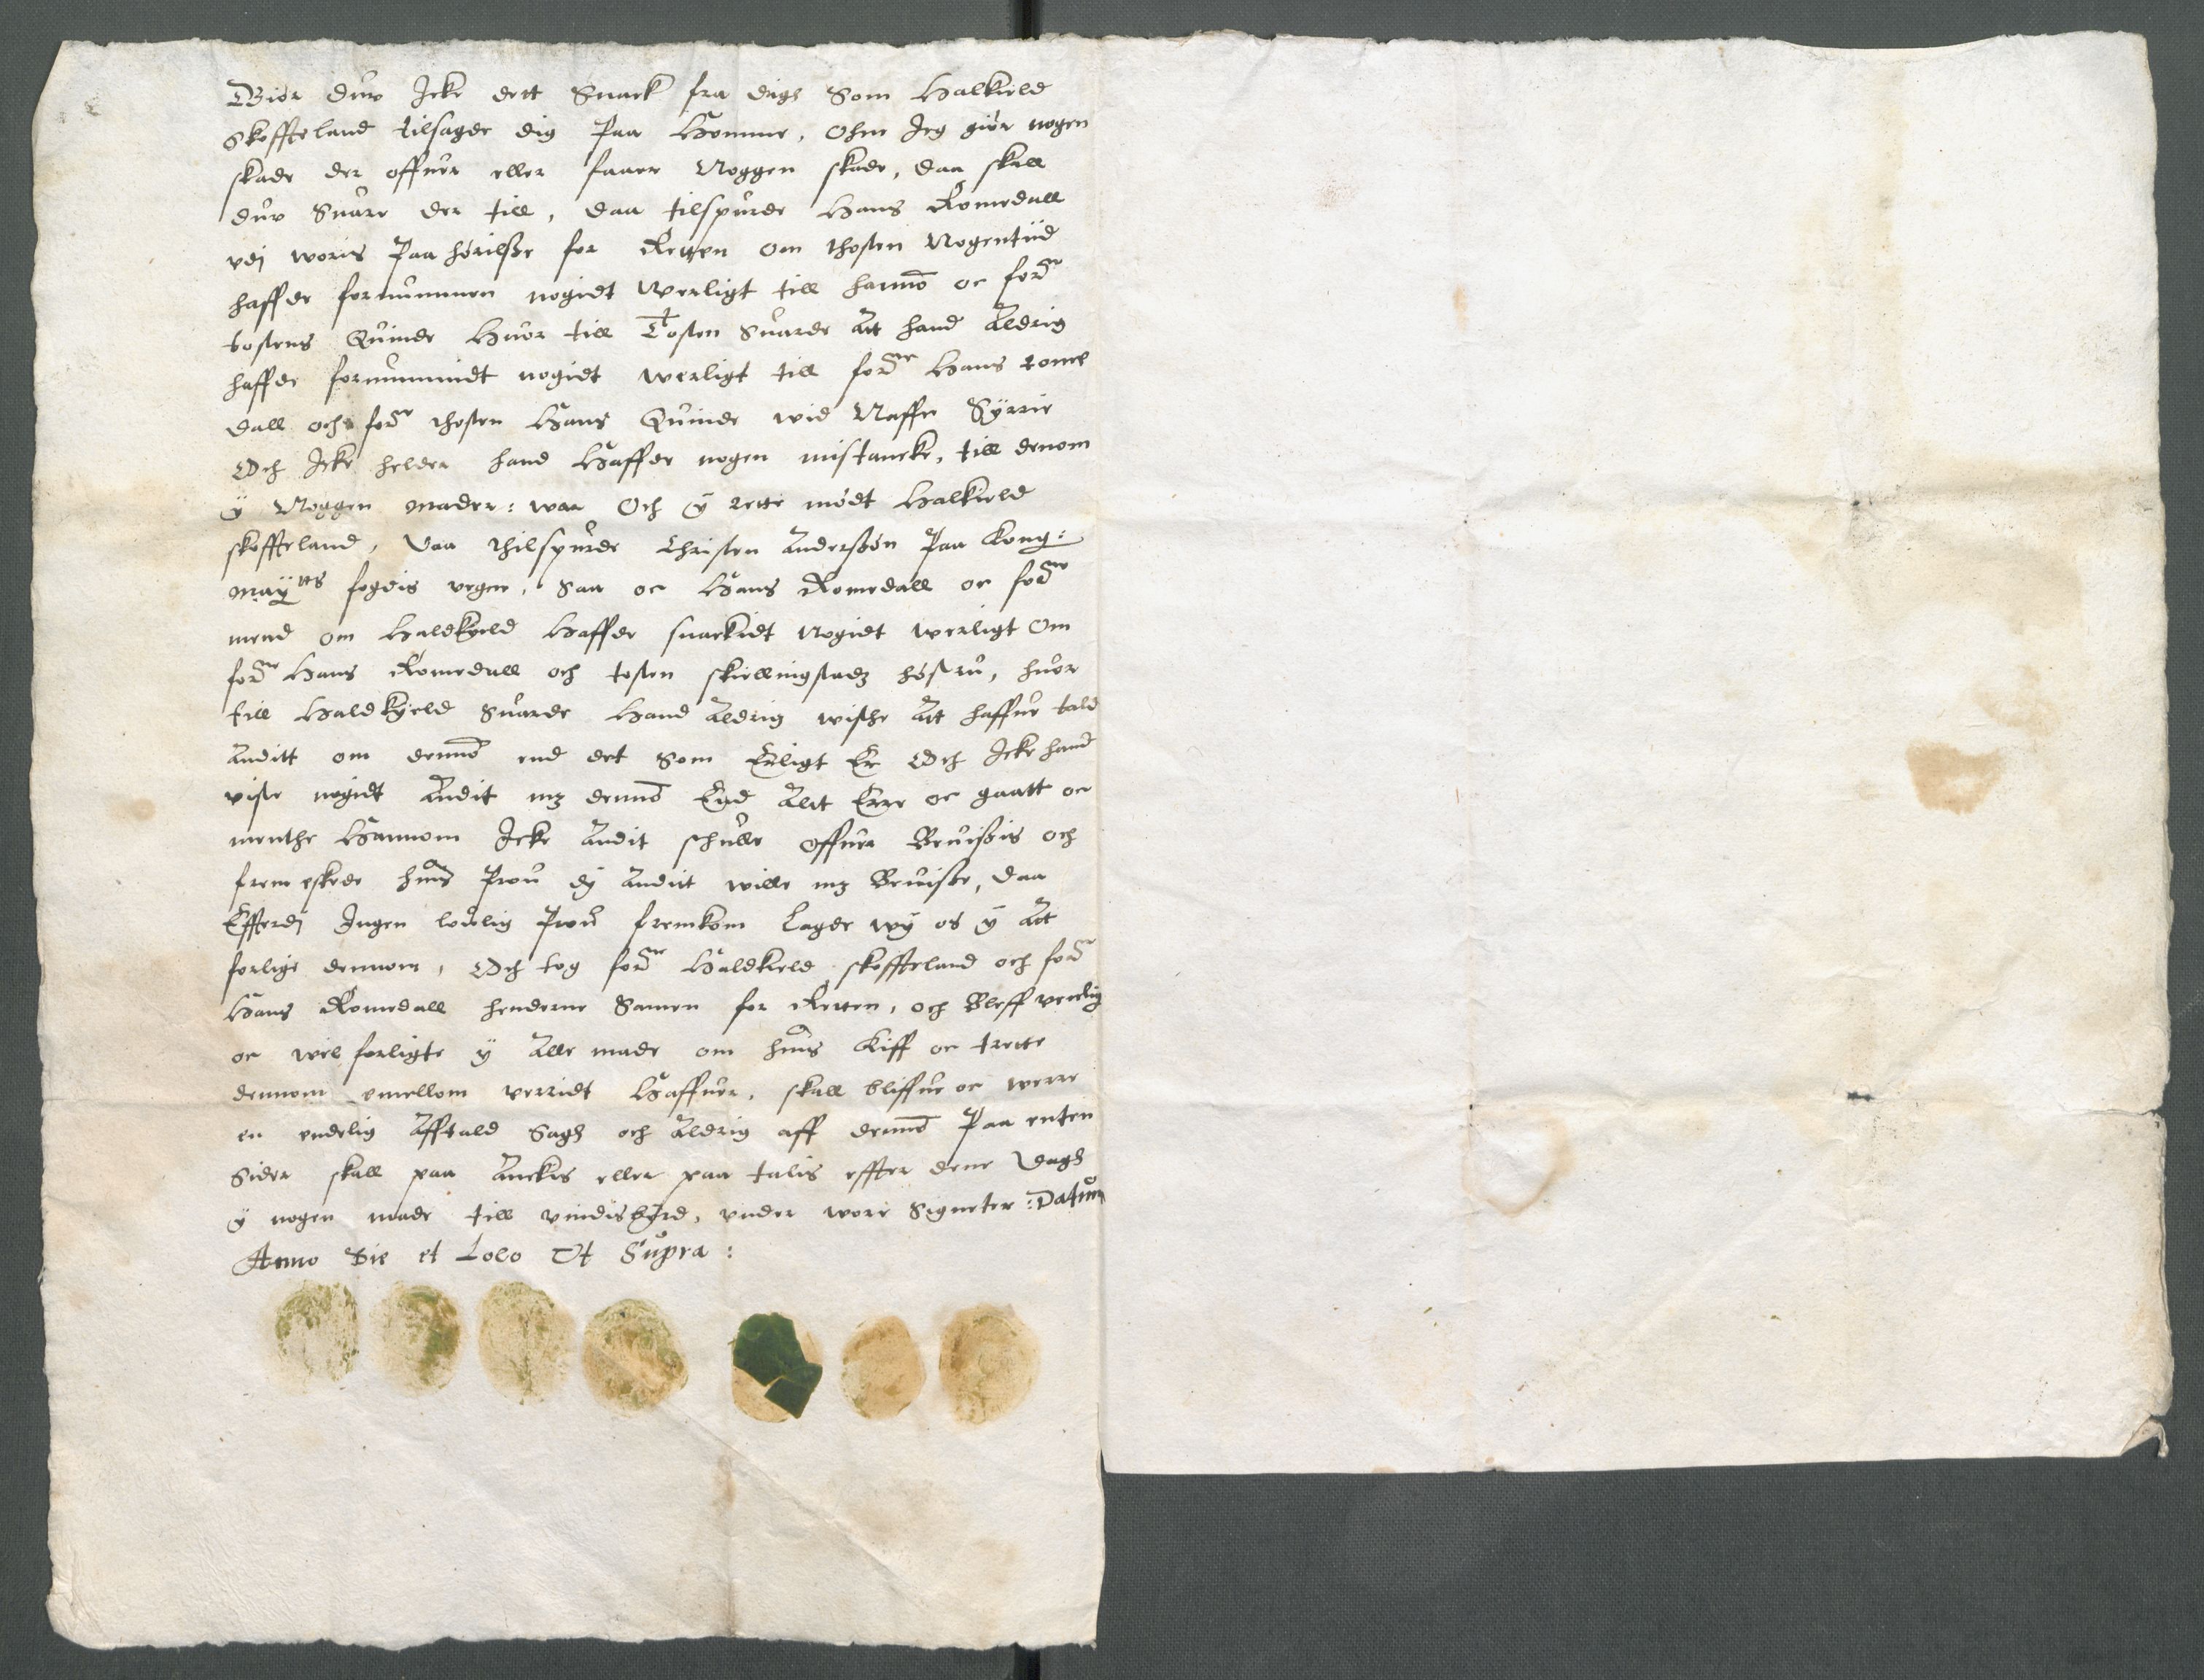 Giör duw Icke dett Snack fra digh Som Halkield
Skoffteland tilsagde dig Paa Hømme, Ohm Ieg giör nogen
skade der offuer eller faaer Noggen skade, daa skall
duw Suare der till, daa tilspurde Hans Romedall
vdj woris Paahörilße for Retten om thosten Nogentiid
haffde fornummen nogidt Werligt till hannō oc forde
tostens Quinde Huor till Tosten Suarde Att hand Aldrig
haffde fornummidt nogidt werligt till forde Hans rome
dall och forde thosten Hans Quinde wid Naffn Syrrie
Och Icke helder hand Haffde nogen mistancke, till denom
ÿ Noggen mader: war Och ÿ rette mödt Halkield
skoffteland, daa thilspurde Christen Anderßön Paa Kong:
Maÿtts fogdis vegne, Saa oc Hans Romedall oc forde
mend om Haldkyeld Haffde snackidt Nogidt werligt Om
forde Hans Romedall och tosten skiellingstadz höstru, huor
till Haldkyeld Suarde Hand Aldrig wiste Att haffue tald
Anditt om dennō end det Som Erligt Er Och Icke hand
viste nogidt Andit mz dennō End Alt Erre oc gaatt oc
menthe Hannom Icke Andit schulle offuer Beuißis och
fremeskede huis Prou dÿ Anditt wille mz Beuiße, daa
Effterdj Ingen loulig Prou fremkom Lagde wÿ os ÿ Att
forlige dennom, Och tog forde Haldkield skoffteland och forde
Hans Romedall henderne Samen for Retten, och Bleff venlig
oc wel forligte ÿ Alle made om huis Kiff oc trette
dennom emellom verridt Haffuer, skall bliffue oc werre
en endelig Afftald Sagh och Aldrig aff dennō Paa enten
Sider skall paa Anckis eller paa talis effter dene Dagh
ÿ nogen made till vindisbyrd, vnder wore Signeter: Datum
Anno Die et Loco Vt Supra: